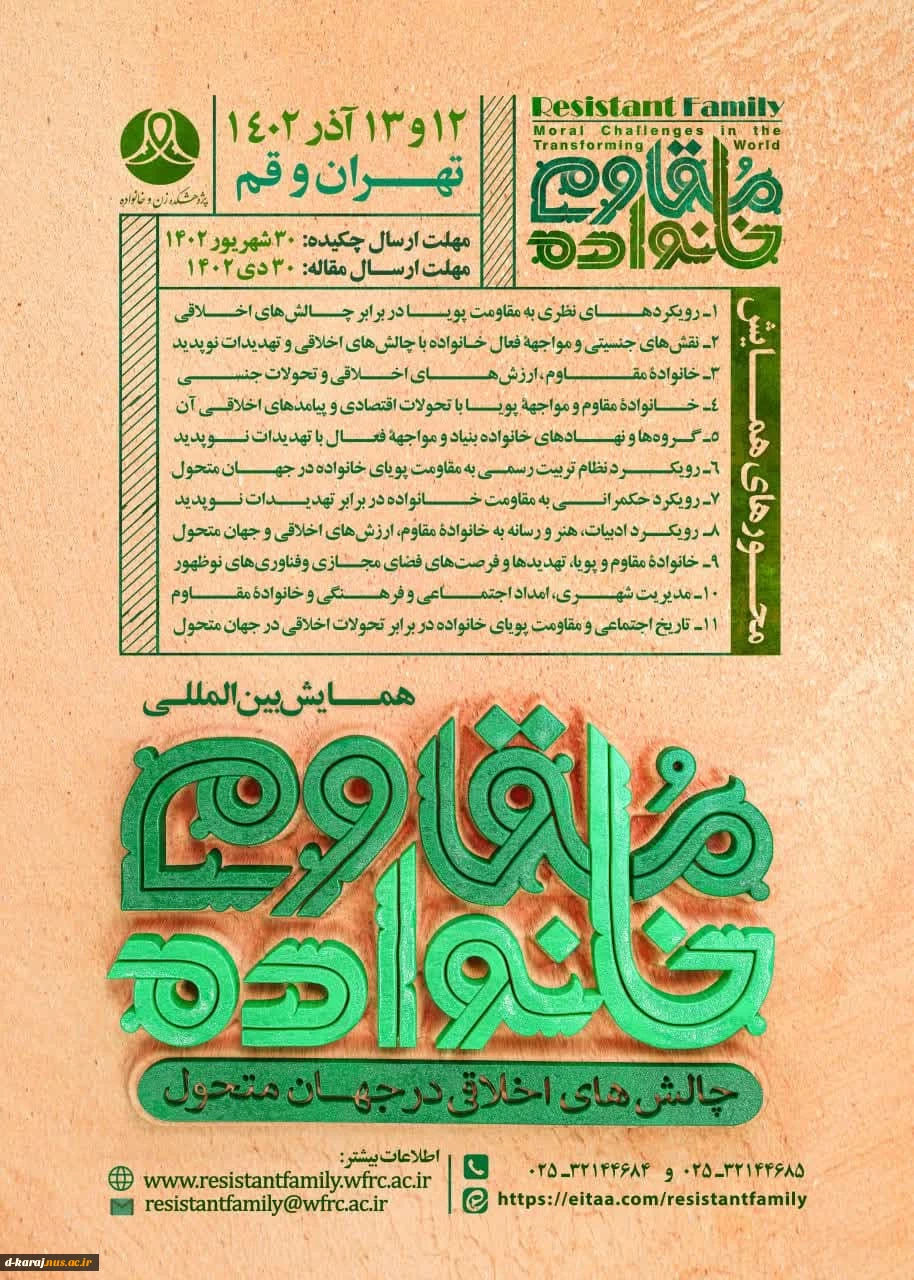 Resistant Family
Moral Challenges in the
Transforming World
خانواده مُقاوم
۱۲ و ۱۳ آذر ۱۴۰۲
تهران و قم
پژوهشکده زن و خانواده
مهلت ارسال چکیده: ۳۰ شهریور ۱۴۰۲
مهلت ارسال مقاله: ۳۰ دی ۱۴۰۲
محورهای همایش
۱ـ رویکردهای نظری به مقاومت پویا در برابر چالش‌های اخلاقی
۲ـ نقش‌های جنسیتی و مواجههٔ فعال خانواده با چالش‌های اخلاقی و تهدیدات نوپدید
۳ـ خانوادهٔ مقاوم، ارزش‌های اخلاقی و تحولات جنسی
۴ـ خانوادهٔ مقاوم و مواجههٔ پویا با تحولات اقتصادی و پیامدهای اخلاقی آن
۵ـ گروه‌ها و نهادهای خانواده بنیاد و مواجههٔ فعال با تهدیدات نوپدید
۶ـ رویکرد نظام تربیت رسمی به مقاومت پویای خانواده در جهان متحول
۷ـ رویکرد حکمرانی به مقاومت خانواده در برابر تهدیدات نوپدید
۸ـ رویکرد ادبیات، هنر و رسانه به خانوادهٔ مقاوم، ارزش‌های اخلاقی و جهان متحول
۹ـ خانوادهٔ مقاوم و پویا، تهدیدها و فرصت‌های فضای مجازی وفناوری‌های نوظهور
۱۰ـ مدیریت شهری، امداد اجتماعی و فرهنگی و خانوادهٔ مقاوم
۱۱ـ تاریخ اجتماعی و مقاومت پویای خانواده در برابر تحولات اخلاقی در جهان متحول
همایش بین‌المللی
خانواده مُقاوم
چالش های اخلاقی در جهان متحول
اطلاعات بیشتر:
www.resistantfamily.wfrc.ac.ir
resistantfamily@wfrc.ac.ir
۰۲۵ـ۳۲۱۴۴۶۸۵ و ۰۲۵ـ۳۲۱۴۴۶۸۴
https://eitaa.com/resistantfamily
d-karaj.nus.ac.ir